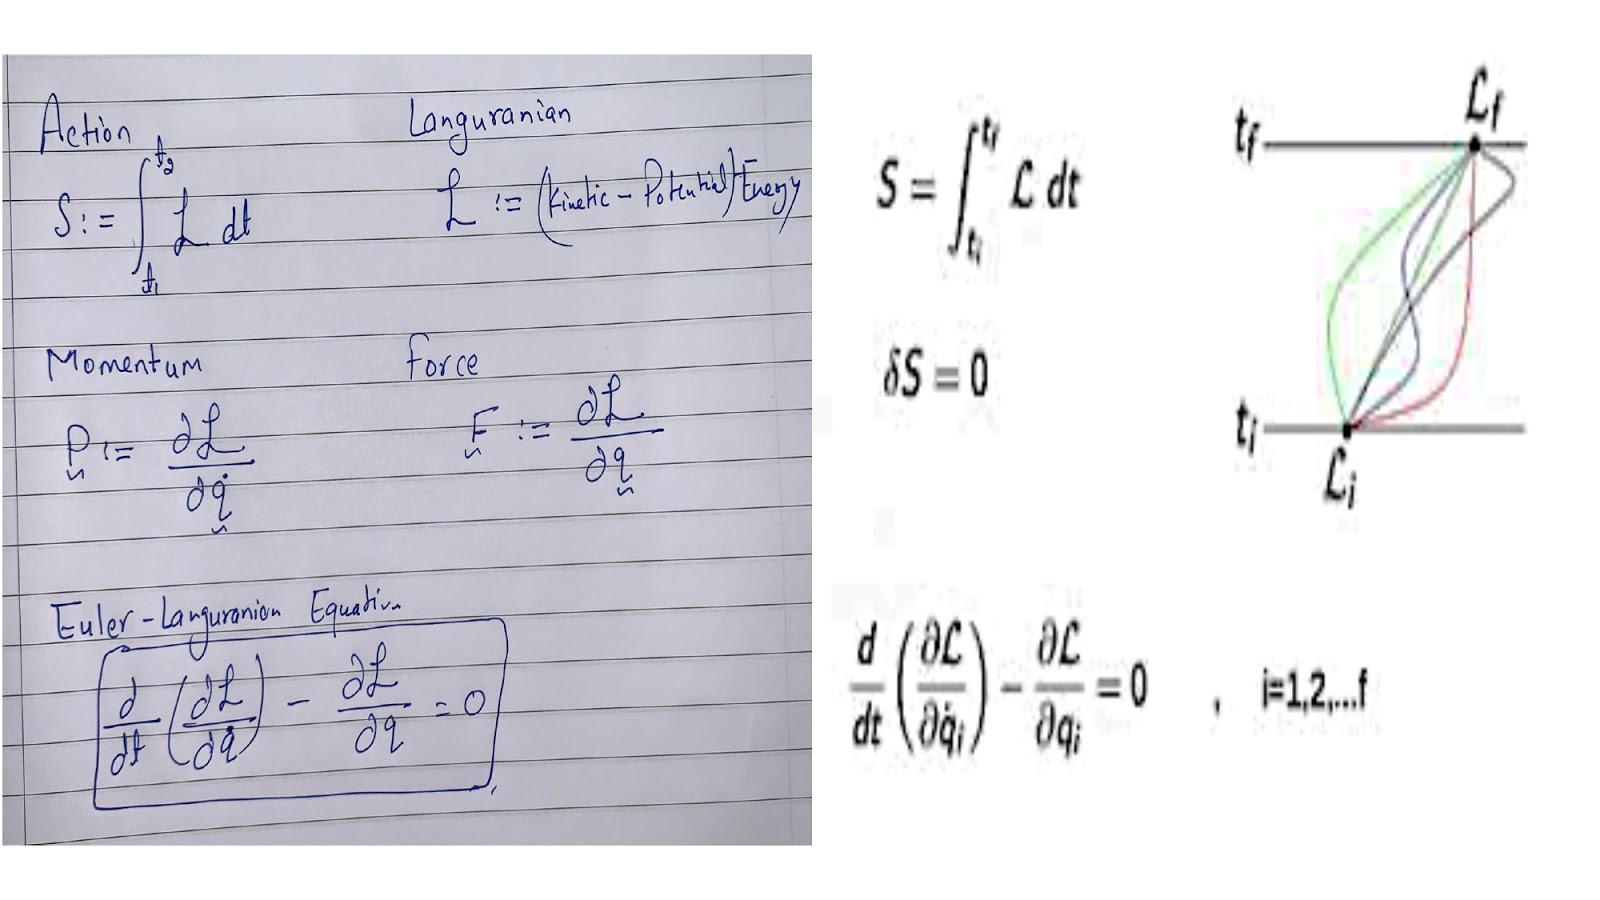 Action
S := ∫_{t₁}^{t₂} ℒ dt
Languranian
ℒ := (Kinetic - Potential) Energy
Momentum
P := ∂ℒ/∂q̇
Force
F := ∂ℒ/∂q
Euler-Languranian Equation
d/dt (∂ℒ/∂q̇) - ∂ℒ/∂q = 0
S = ∫_{tᵢ}^{t_f} ℒ dt
δS = 0
t_f
ℒ_f
tᵢ
ℒᵢ
d/dt (∂ℒ/∂q̇ᵢ) - ∂ℒ/∂qᵢ = 0 , i=1,2,...f